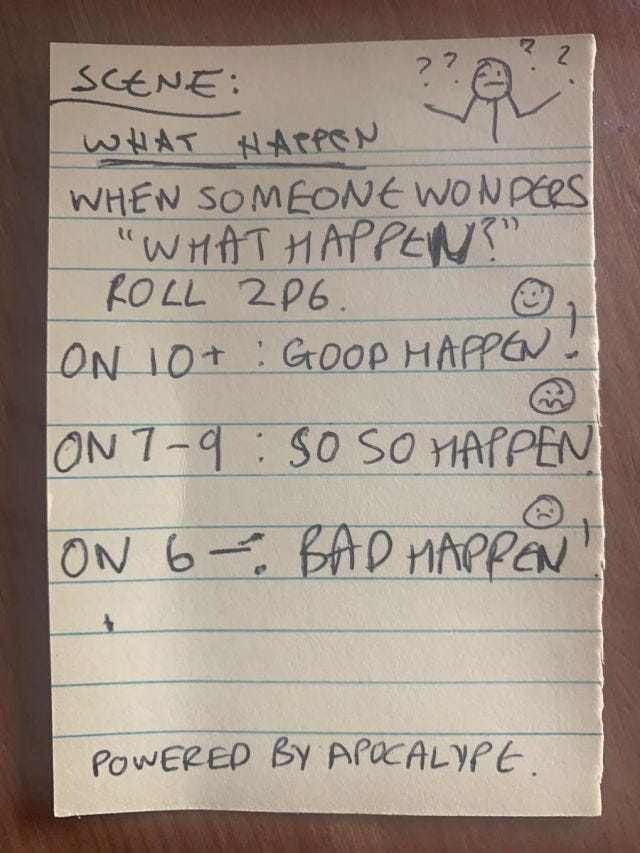 ? ? ? ?
SCENE:
WHAT HAPPEN
WHEN SOMEONE WONDERS
"WHAT HAPPEN?"
ROLL 2D6.
ON 10+ : GOOD HAPPEN!
ON 7-9 : SO SO HAPPEN.
ON 6-: BAD HAPPEN!
POWERED BY APOCALYPE.